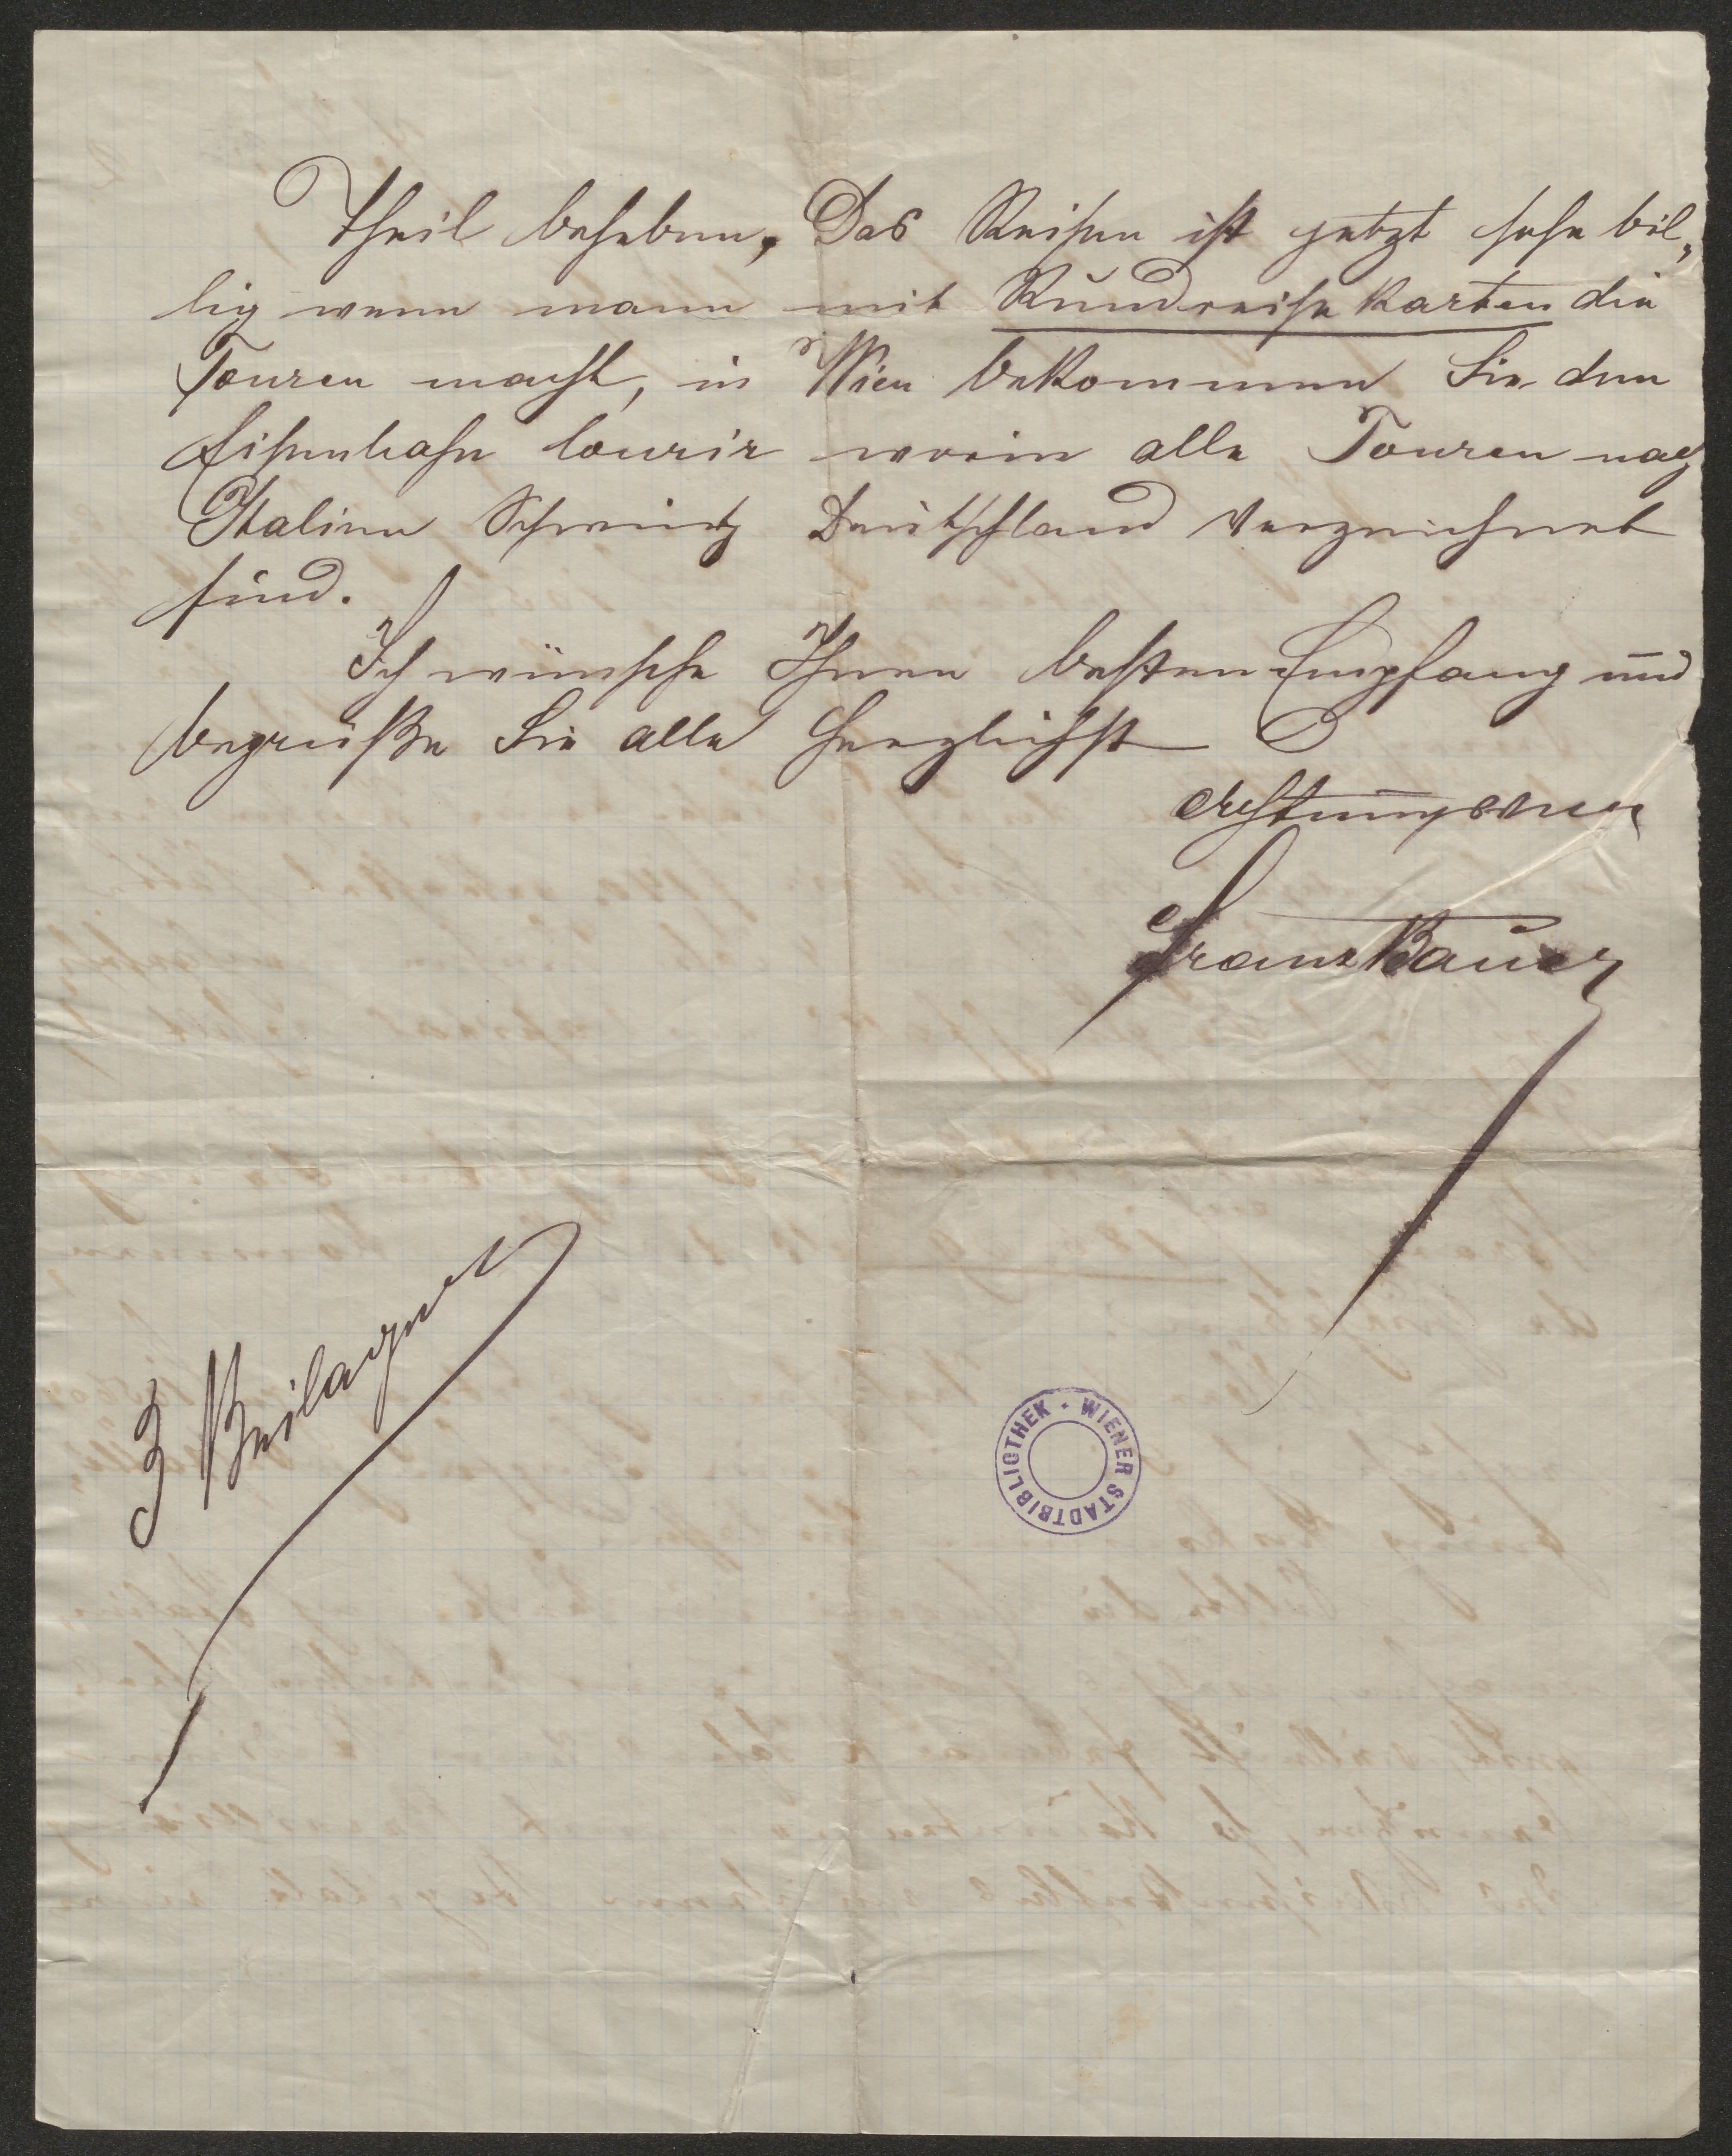 Theil beheben. Das Reisen ist jetzt sehr bil„
lig wenn mann mit Rundreise Karten die
Touren macht, in Wien bekommen Sie den
Eisenbahn Courir worin alle Touren nach
Italien Schweitz Deutschland verzeichnet
sind.
Ich wünsche Ihnen besten Empfang und
begrüße Sie alle herzlichst
Achtungsvoll
Franz Bauer
3 Beilagen
WIENER STADTBIBLIOTHEK